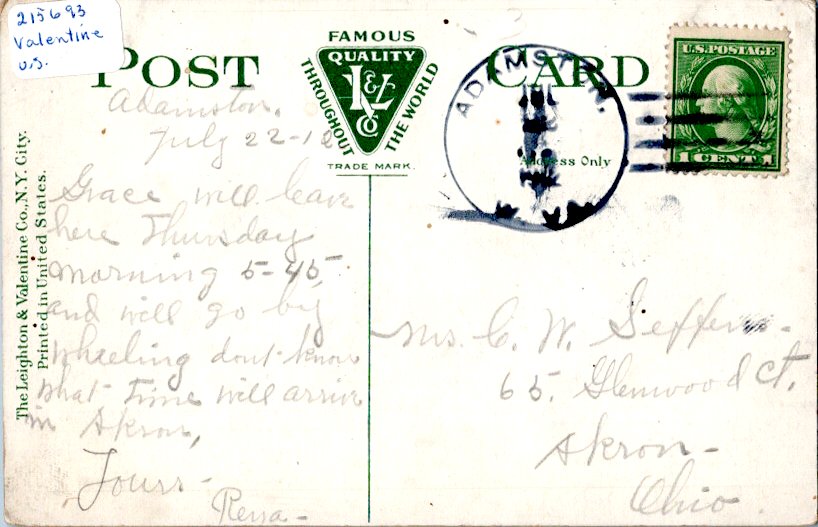 215693
Valentine
U.S.
POST CARD
FAMOUS
QUALITY
L&V
Co
THROUGHOUT
THE WORLD
TRADE MARK.
Address Only
ADAMSTON,
U.S. POSTAGE
1 CENT 1
The Leighton & Valentine Co., N.Y. City.
Printed in United States.
Adamston,
July 22-1
Grace will leave
here Thursday
morning 5-45,
and will go by
Wheeling dont know
what time will arrive
in Akron,
Yours-
Mrs. C. W.
65. Glenwood Ct.
Akron-
Ohio.